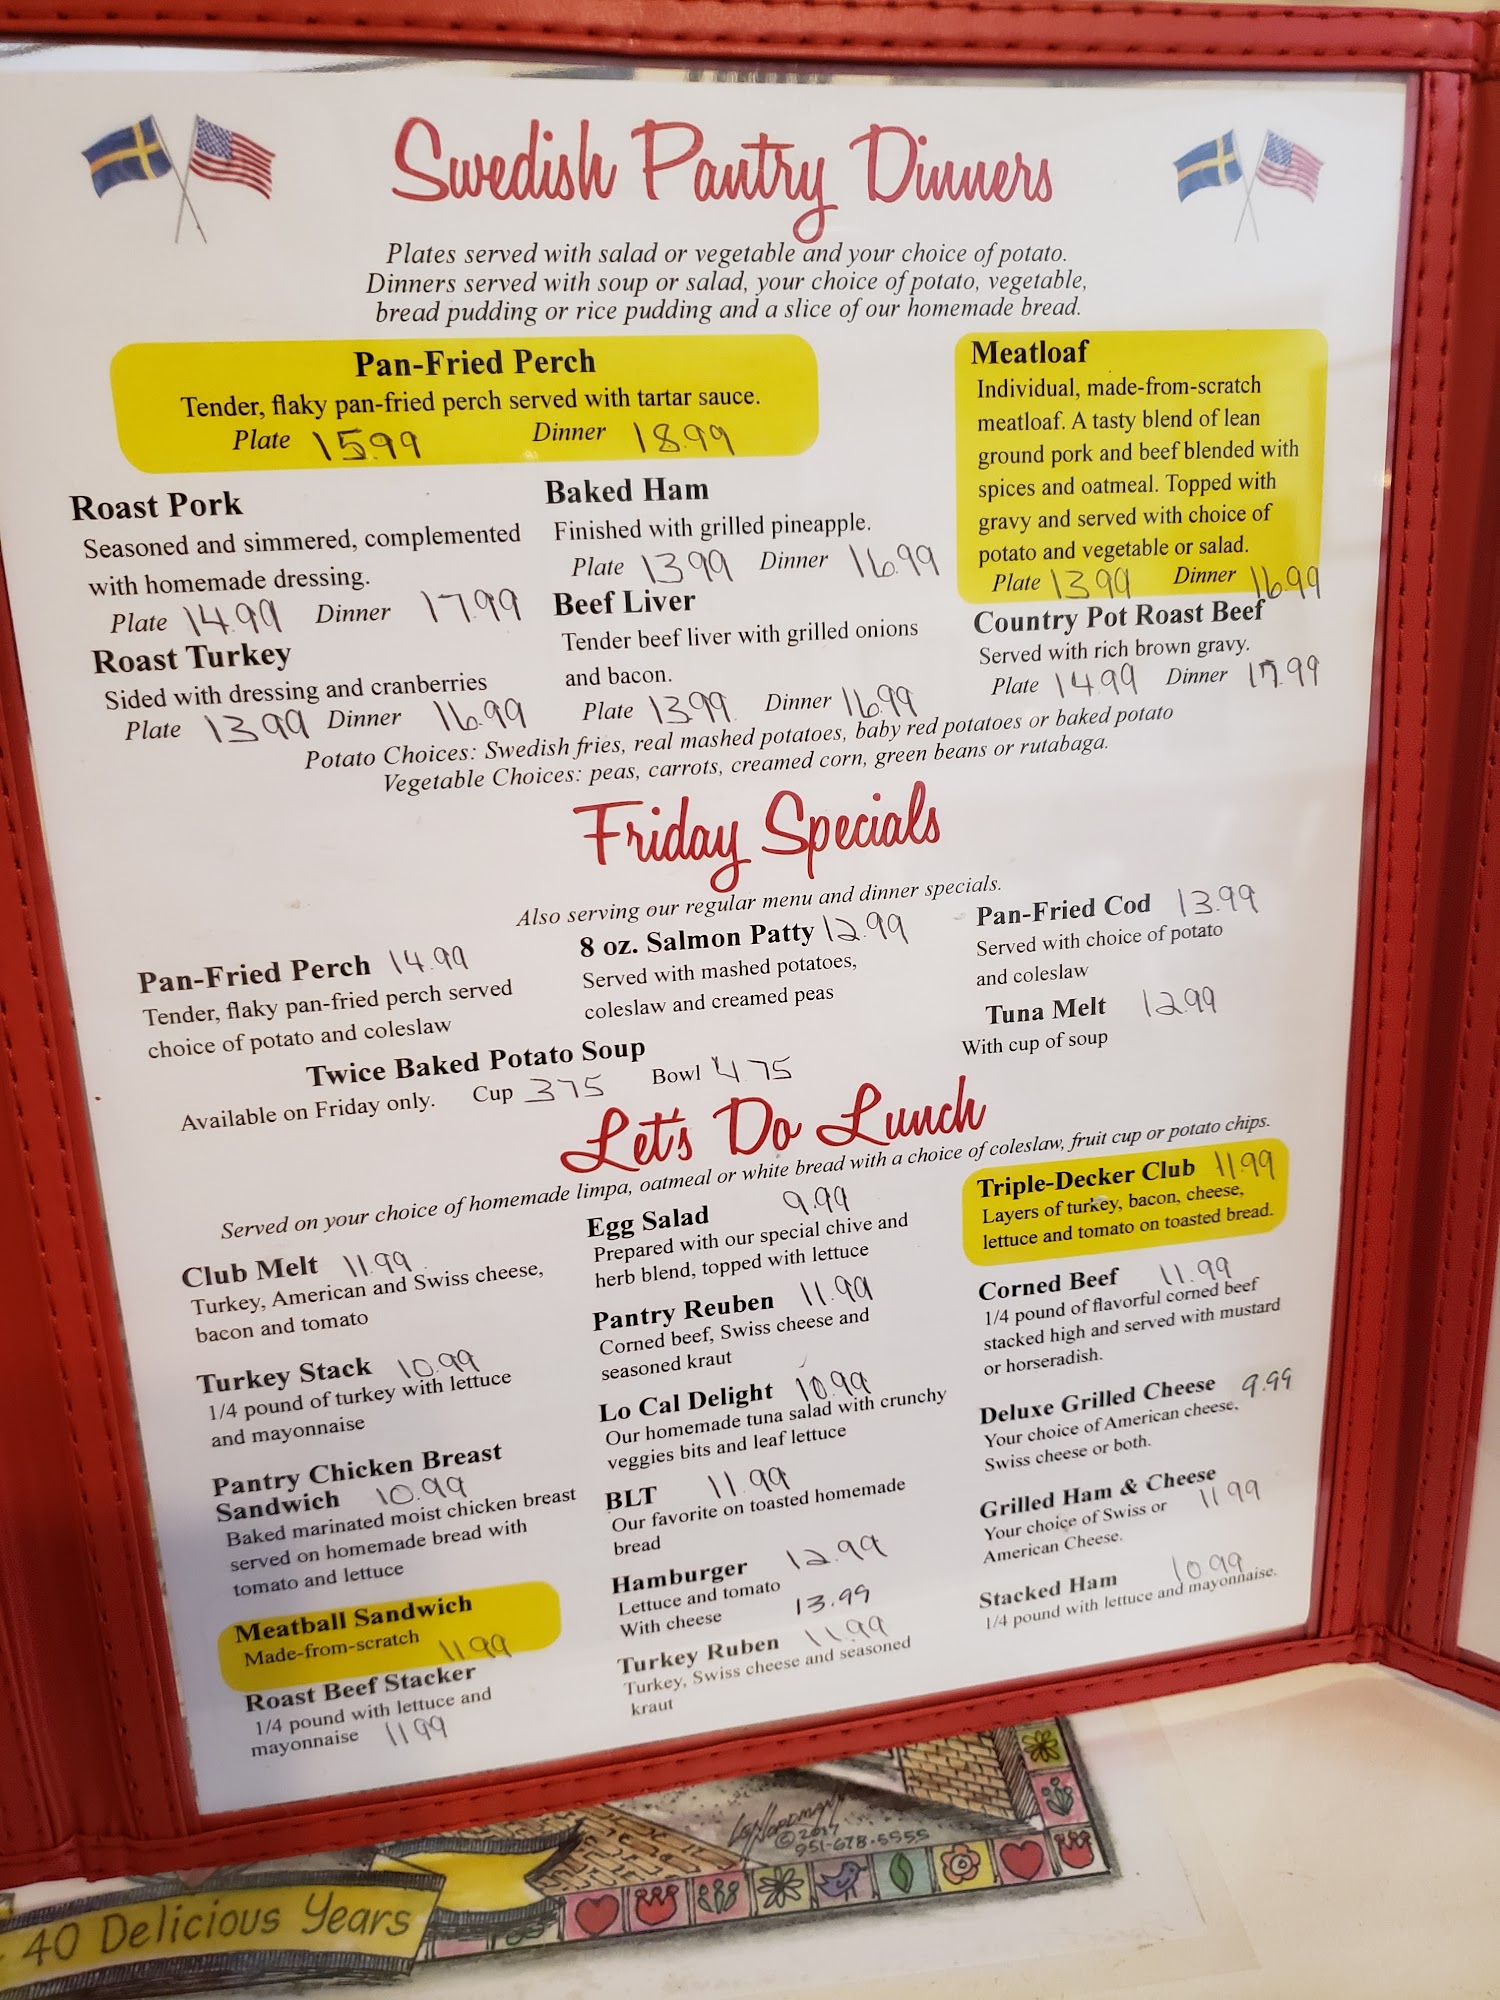 Swedish Pantry Dinners
Plates served with salad or vegetable and your choice of potato.
Dinners served with soup or salad, your choice of potato, vegetable,
bread pudding or rice pudding and a slice of our homemade bread.
Pan-Fried Perch
Tender, flaky pan-fried perch served with tartar sauce.
Plate 15.99 Dinner 18.99
Roast Pork
Seasoned and simmered, complemented
with homemade dressing.
Plate 14.99 Dinner 17.99
Roast Turkey
Sided with dressing and cranberries
Plate 13.99 Dinner 16.99
Baked Ham
Finished with grilled pineapple.
Plate 13.99 Dinner 16.99
Beef Liver
Tender beef liver with grilled onions
and bacon.
Plate 13.99 Dinner 16.99
Meatloaf
Individual, made-from-scratch
meatloaf. A tasty blend of lean
ground pork and beef blended with
spices and oatmeal. Topped with
gravy and served with choice of
potato and vegetable or salad.
Plate 13.99 Dinner 16.99
Country Pot Roast Beef
Served with rich brown gravy.
Plate 14.99 Dinner 17.99
Potato Choices: Swedish fries, real mashed potatoes, baby red potatoes or baked potato
Vegetable Choices: peas, carrots, creamed corn, green beans or rutabaga.
Friday Specials
Also serving our regular menu and dinner specials.
Pan-Fried Perch 14.99
Tender, flaky pan-fried perch served
choice of potato and coleslaw
8 oz. Salmon Patty 12.99
Served with mashed potatoes,
coleslaw and creamed peas
Pan-Fried Cod 13.99
Served with choice of potato
and coleslaw
Tuna Melt 12.99
With cup of soup
Twice Baked Potato Soup
Available on Friday only. Cup 3.75 Bowl 4.75
Let's Do Lunch
Served on your choice of homemade limpa, oatmeal or white bread with a choice of coleslaw, fruit cup or potato chips.
Club Melt 11.99
Turkey, American and Swiss cheese,
bacon and tomato
Turkey Stack 10.99
1/4 pound of turkey with lettuce
and mayonnaise
Pantry Chicken Breast
Sandwich 10.99
Baked marinated moist chicken breast
served on homemade bread with
tomato and lettuce
Meatball Sandwich
Made-from-scratch 11.99
Roast Beef Stacker
1/4 pound with lettuce and
mayonnaise 11.99
Egg Salad 9.99
Prepared with our special chive and
herb blend, topped with lettuce
Pantry Reuben 11.99
Corned beef, Swiss cheese and
seasoned kraut
Lo Cal Delight 10.99
Our homemade tuna salad with crunchy
veggies bits and leaf lettuce
BLT 11.99
Our favorite on toasted homemade
bread
Hamburger 12.99
Lettuce and tomato
With cheese 13.99
Turkey Ruben 11.99
Turkey, Swiss cheese and seasoned
kraut
Triple-Decker Club 11.99
Layers of turkey, bacon, cheese,
lettuce and tomato on toasted bread.
Corned Beef 11.99
1/4 pound of flavorful corned beef
stacked high and served with mustard
or horseradish.
Deluxe Grilled Cheese 9.99
Your choice of American cheese,
Swiss cheese or both.
Grilled Ham & Cheese
Your choice of Swiss or 11.99
American Cheese.
Stacked Ham 10.99
1/4 pound with lettuce and mayonnaise.
© 2017
951-678-5555
40 Delicious Years